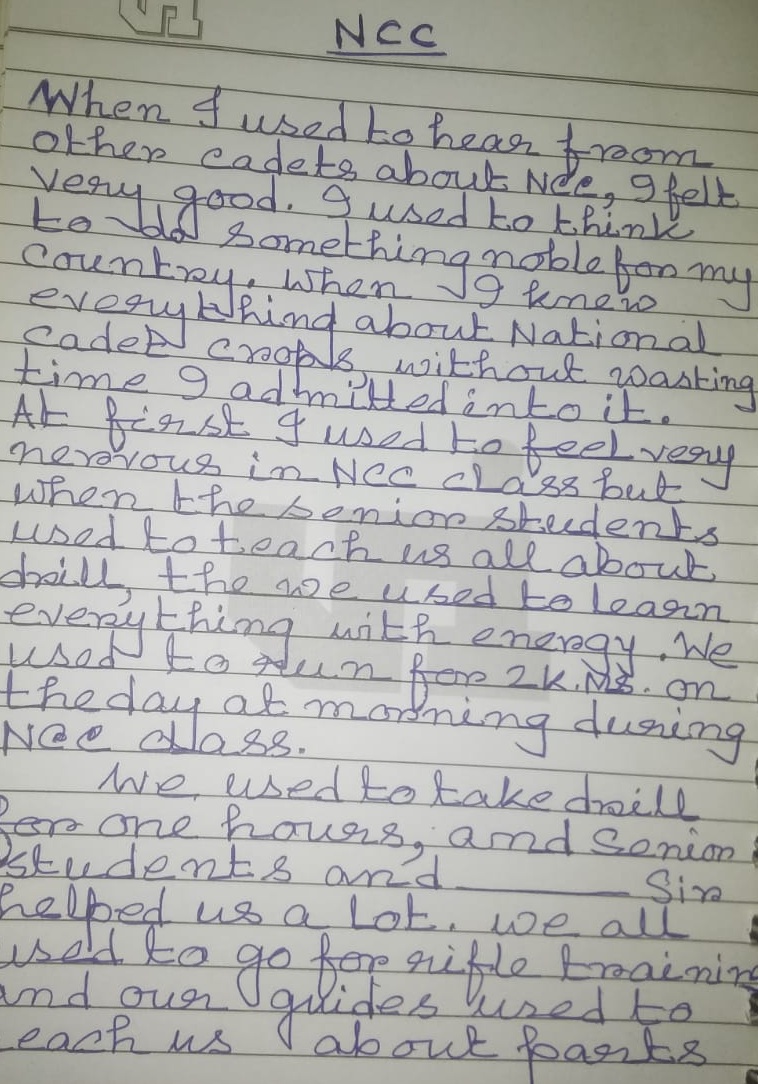 NCC
When I used to hear from
other cadets about Ncc, I felt
very good. I used to think
to do something noble for my
Country. When I knew
everything about National
cadet crops, without wasting
time I admitted into it.
At first I used to feel very
nervous in NCC class but
when the senior students
used to teach us all about
drill, the we used to learn
everything with energy. We
used to run for 2 K.Ms. on
the day at morning during
NCC class.
We used to take drill
for one hours, and Senior
students and ______ Sir
helped us a lot. we all
used to go for rifle trainin
and our guides used to
each us about parts